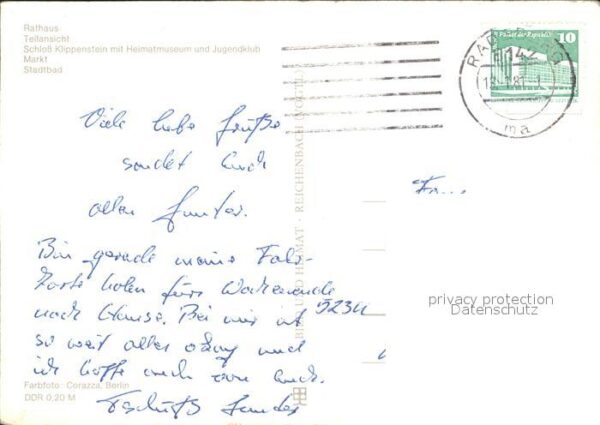 Rathaus
Teilansicht
Schloß Klippenstein mit Heimatmuseum und Jugendklub
Markt
Stadtbad
Palast der Republik
10
Viele liebe Grüße
sendet Euch
allen Gunter.
Bin gerade meine Fahr-
karte holen fürs Wochenende
nach Hause. Bei mir ist
so weit alles okay und
ich hoffe auch von Euch.
Tschüß Gunter
Fa...
5234
privacy protection
Datenschutz
BILD UND HEIMAT · REICHENBACH (VOGTL)
Farbfoto: Corazza, Berlin
DDR 0,20 M